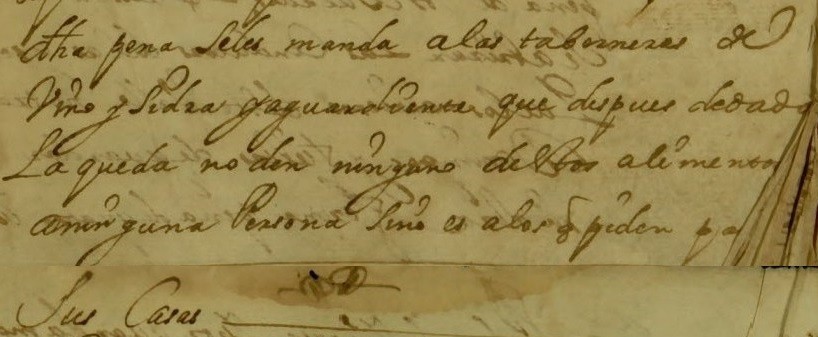 dha pena seles manda alas taberneras de
Vino y Sidra yaguardiente que despues dedada
La queda no den ninguno destos alimentos
aninguna Persona sino es alos q̃ piden pa
Sus Casas